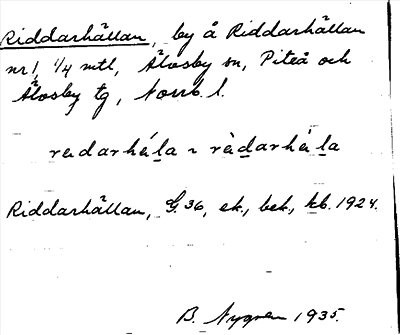 Riddarhällan, by å Riddarhällan
nr 1, 1/4 mtl, Älvsby sn, Piteå och
Älvsby tg, Norrb. l.
redarhála ~ rèdarhála
Riddarhällan, G. 36, ek., bek., kb. 1924.
B. Nygren 1935.